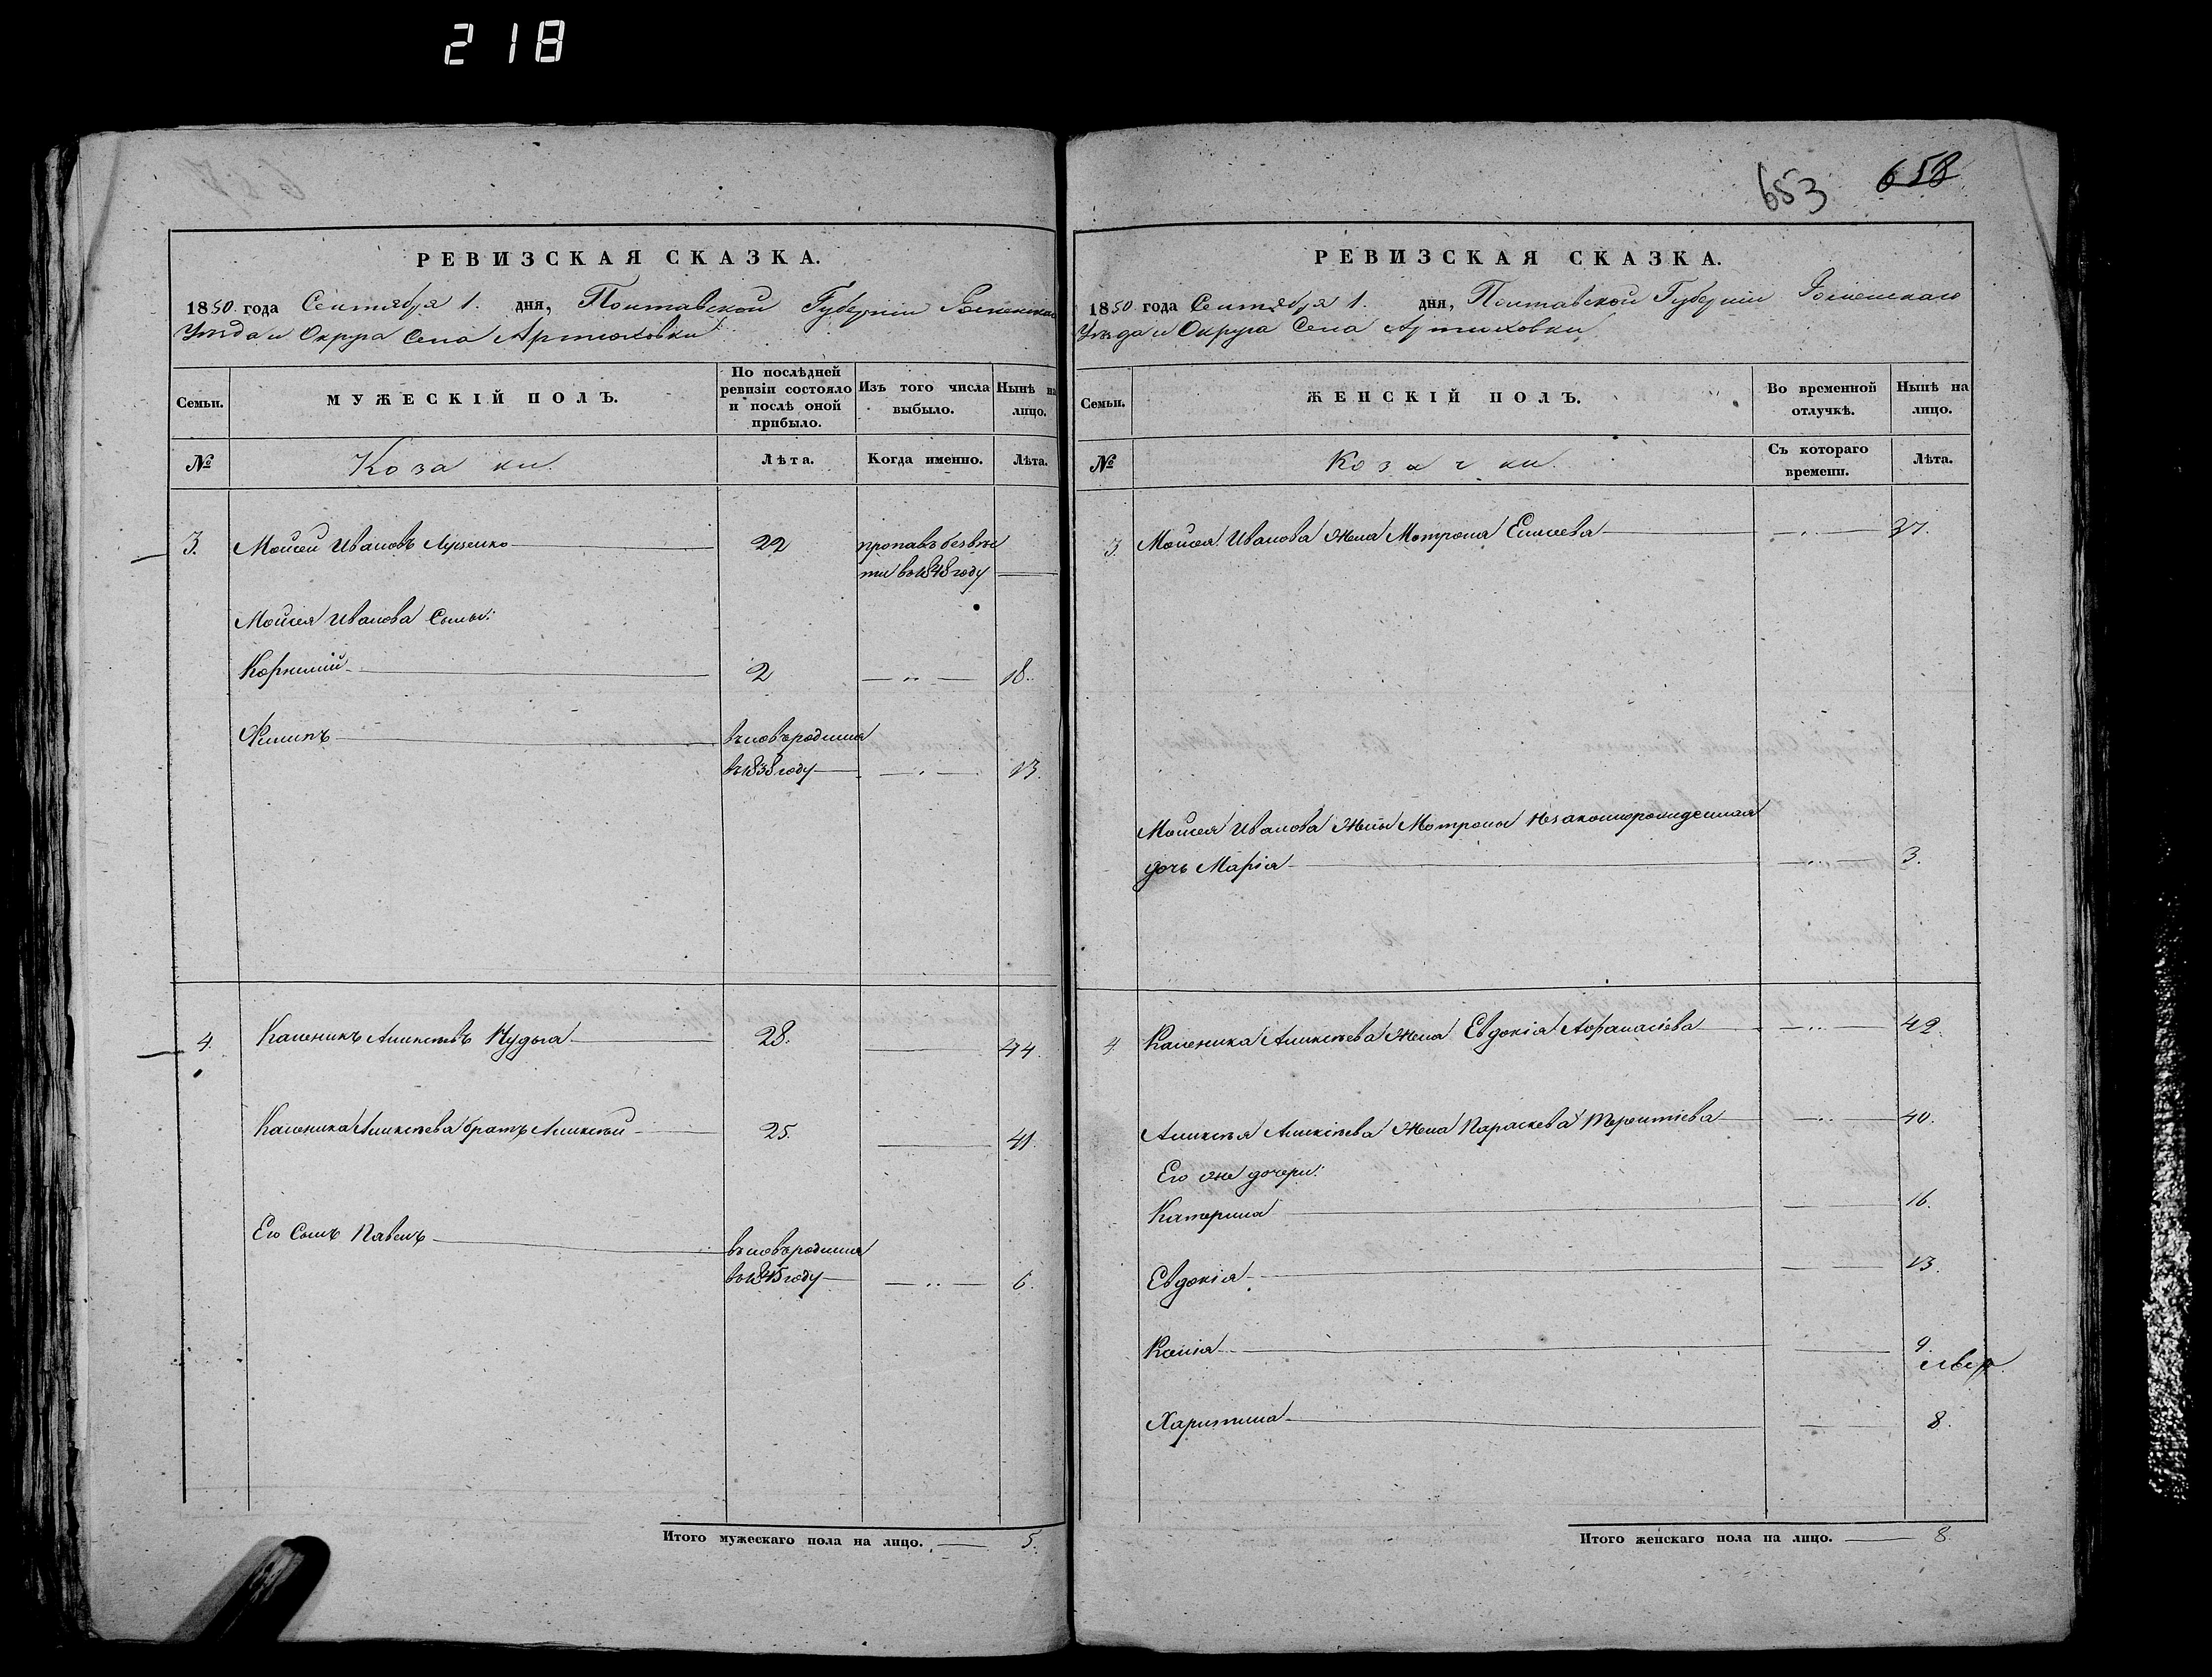 218
653 658
РЕВИЗСКАЯ СКАЗКА.
1850 года Сентября 1. дня, Полтавской Губерніи Роменскаго
Уѣзда и Округа Села Артюховки
Семьи.
МУЖЕСКІЙ ПОЛЪ.
По послѣдней ревизіи состояло и послѣ оной прибыло.
Изъ того числа выбыло.
Нынѣ на лицо.
№
Козаки.
Лѣта.
Когда именно.
Лѣта.
3. Мойсей Ивановъ 22 пропавъ безвѣс
ти въ 1848 году
Мойсея Иванова Сыны:
Корнилій 2 18.
Филипъ вновьродился
въ 1838 году 13.
4. Каленикъ Алексѣевъ Кудыа 28. 44.
Каленика Алексѣева братъ Алексѣй 25. 41.
Его Сынъ Павелъ вновьродился
въ 1845 году 6.
Итого мужескаго пола на лицо. 5.
РЕВИЗСКАЯ СКАЗКА.
1850 года Сентября 1. дня, Полтавской Губерніи Роменскаго
Уѣзда и Округа Села Артюховки
Семьи.
ЖЕНСКІЙ ПОЛЪ.
Во временной отлучкѣ.
Нынѣ на лицо.
№
Козачки.
Съ котораго времени.
Лѣта.
3. Мойсея Иванова Жена Мотрона Елисеева 37.
Мойсея Иванова Жены Мотроны Незаконнорожденная
дочь Марія 3.
4. Каленика Алексѣева Жена Евдокія Афанасіева 42.
Алексѣя Алексѣева Жена Параскева Терентіева 40.
Его же дочери:
Катерина 16.
Евдокія 13.
Ксенія 9
Харитина 8.
Итого женскаго пола на лицо. 8.